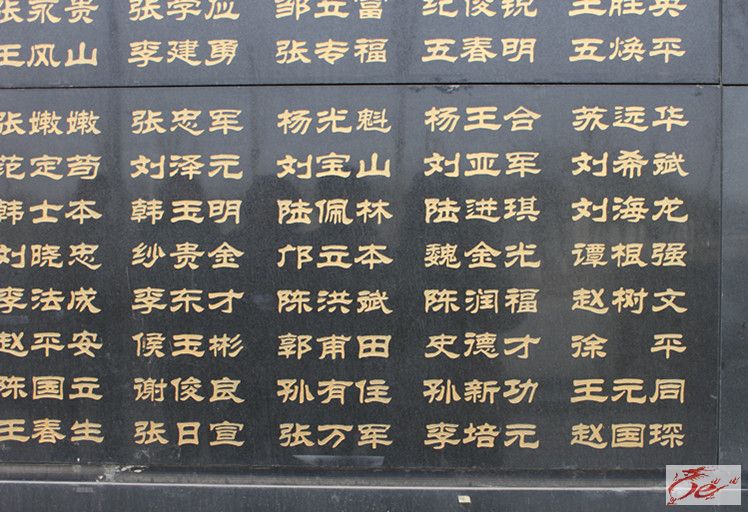 张永贵 张学应 邹立富 纪俊锐 王胜英
王风山 李建勇 张专福 五春明 五焕平
张嫩嫩 张忠军 杨光魁 杨王合 苏远华
范定苟 刘泽元 刘宝山 刘亚军 刘希斌
韩士本 韩玉明 陆佩林 陆进琪 刘海龙
刘晓忠 纱贵金 邝立本 魏金光 谭根强
李法成 李东才 陈洪斌 陈润福 赵树文
赵平安 候玉彬 郭甫田 史德才 徐 平
陈国立 谢俊良 孙有住 孙新功 王元同
王春生 张日宣 张万军 李培元 赵国琛